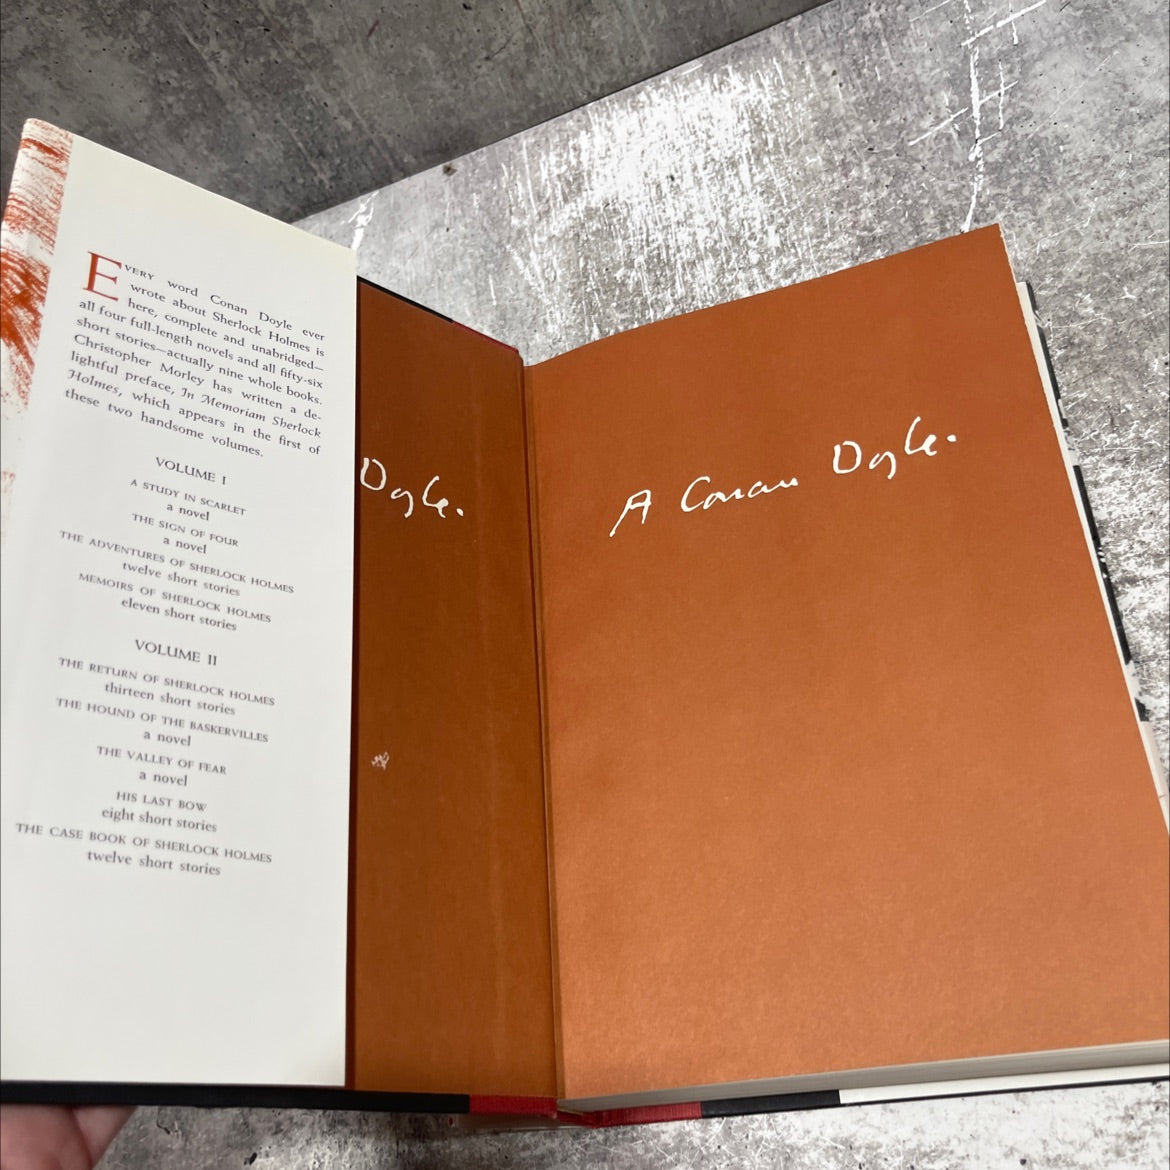 EVERY word Conan Doyle ever
wrote about Sherlock Holmes is
here, complete and unabridged—
all four full-length novels and all fifty-six
short stories—actually nine whole books.
Christopher Morley has written a de-
lightful preface, In Memoriam Sherlock
Holmes, which appears in the first of
these two handsome volumes.
VOLUME I
A STUDY IN SCARLET
a novel
THE SIGN OF FOUR
a novel
THE ADVENTURES OF SHERLOCK HOLMES
twelve short stories
MEMOIRS OF SHERLOCK HOLMES
eleven short stories
VOLUME II
THE RETURN OF SHERLOCK HOLMES
thirteen short stories
THE HOUND OF THE BASKERVILLES
a novel
THE VALLEY OF FEAR
a novel
HIS LAST BOW
eight short stories
THE CASE BOOK OF SHERLOCK HOLMES
twelve short stories
Doyle.
A Conan Doyle.